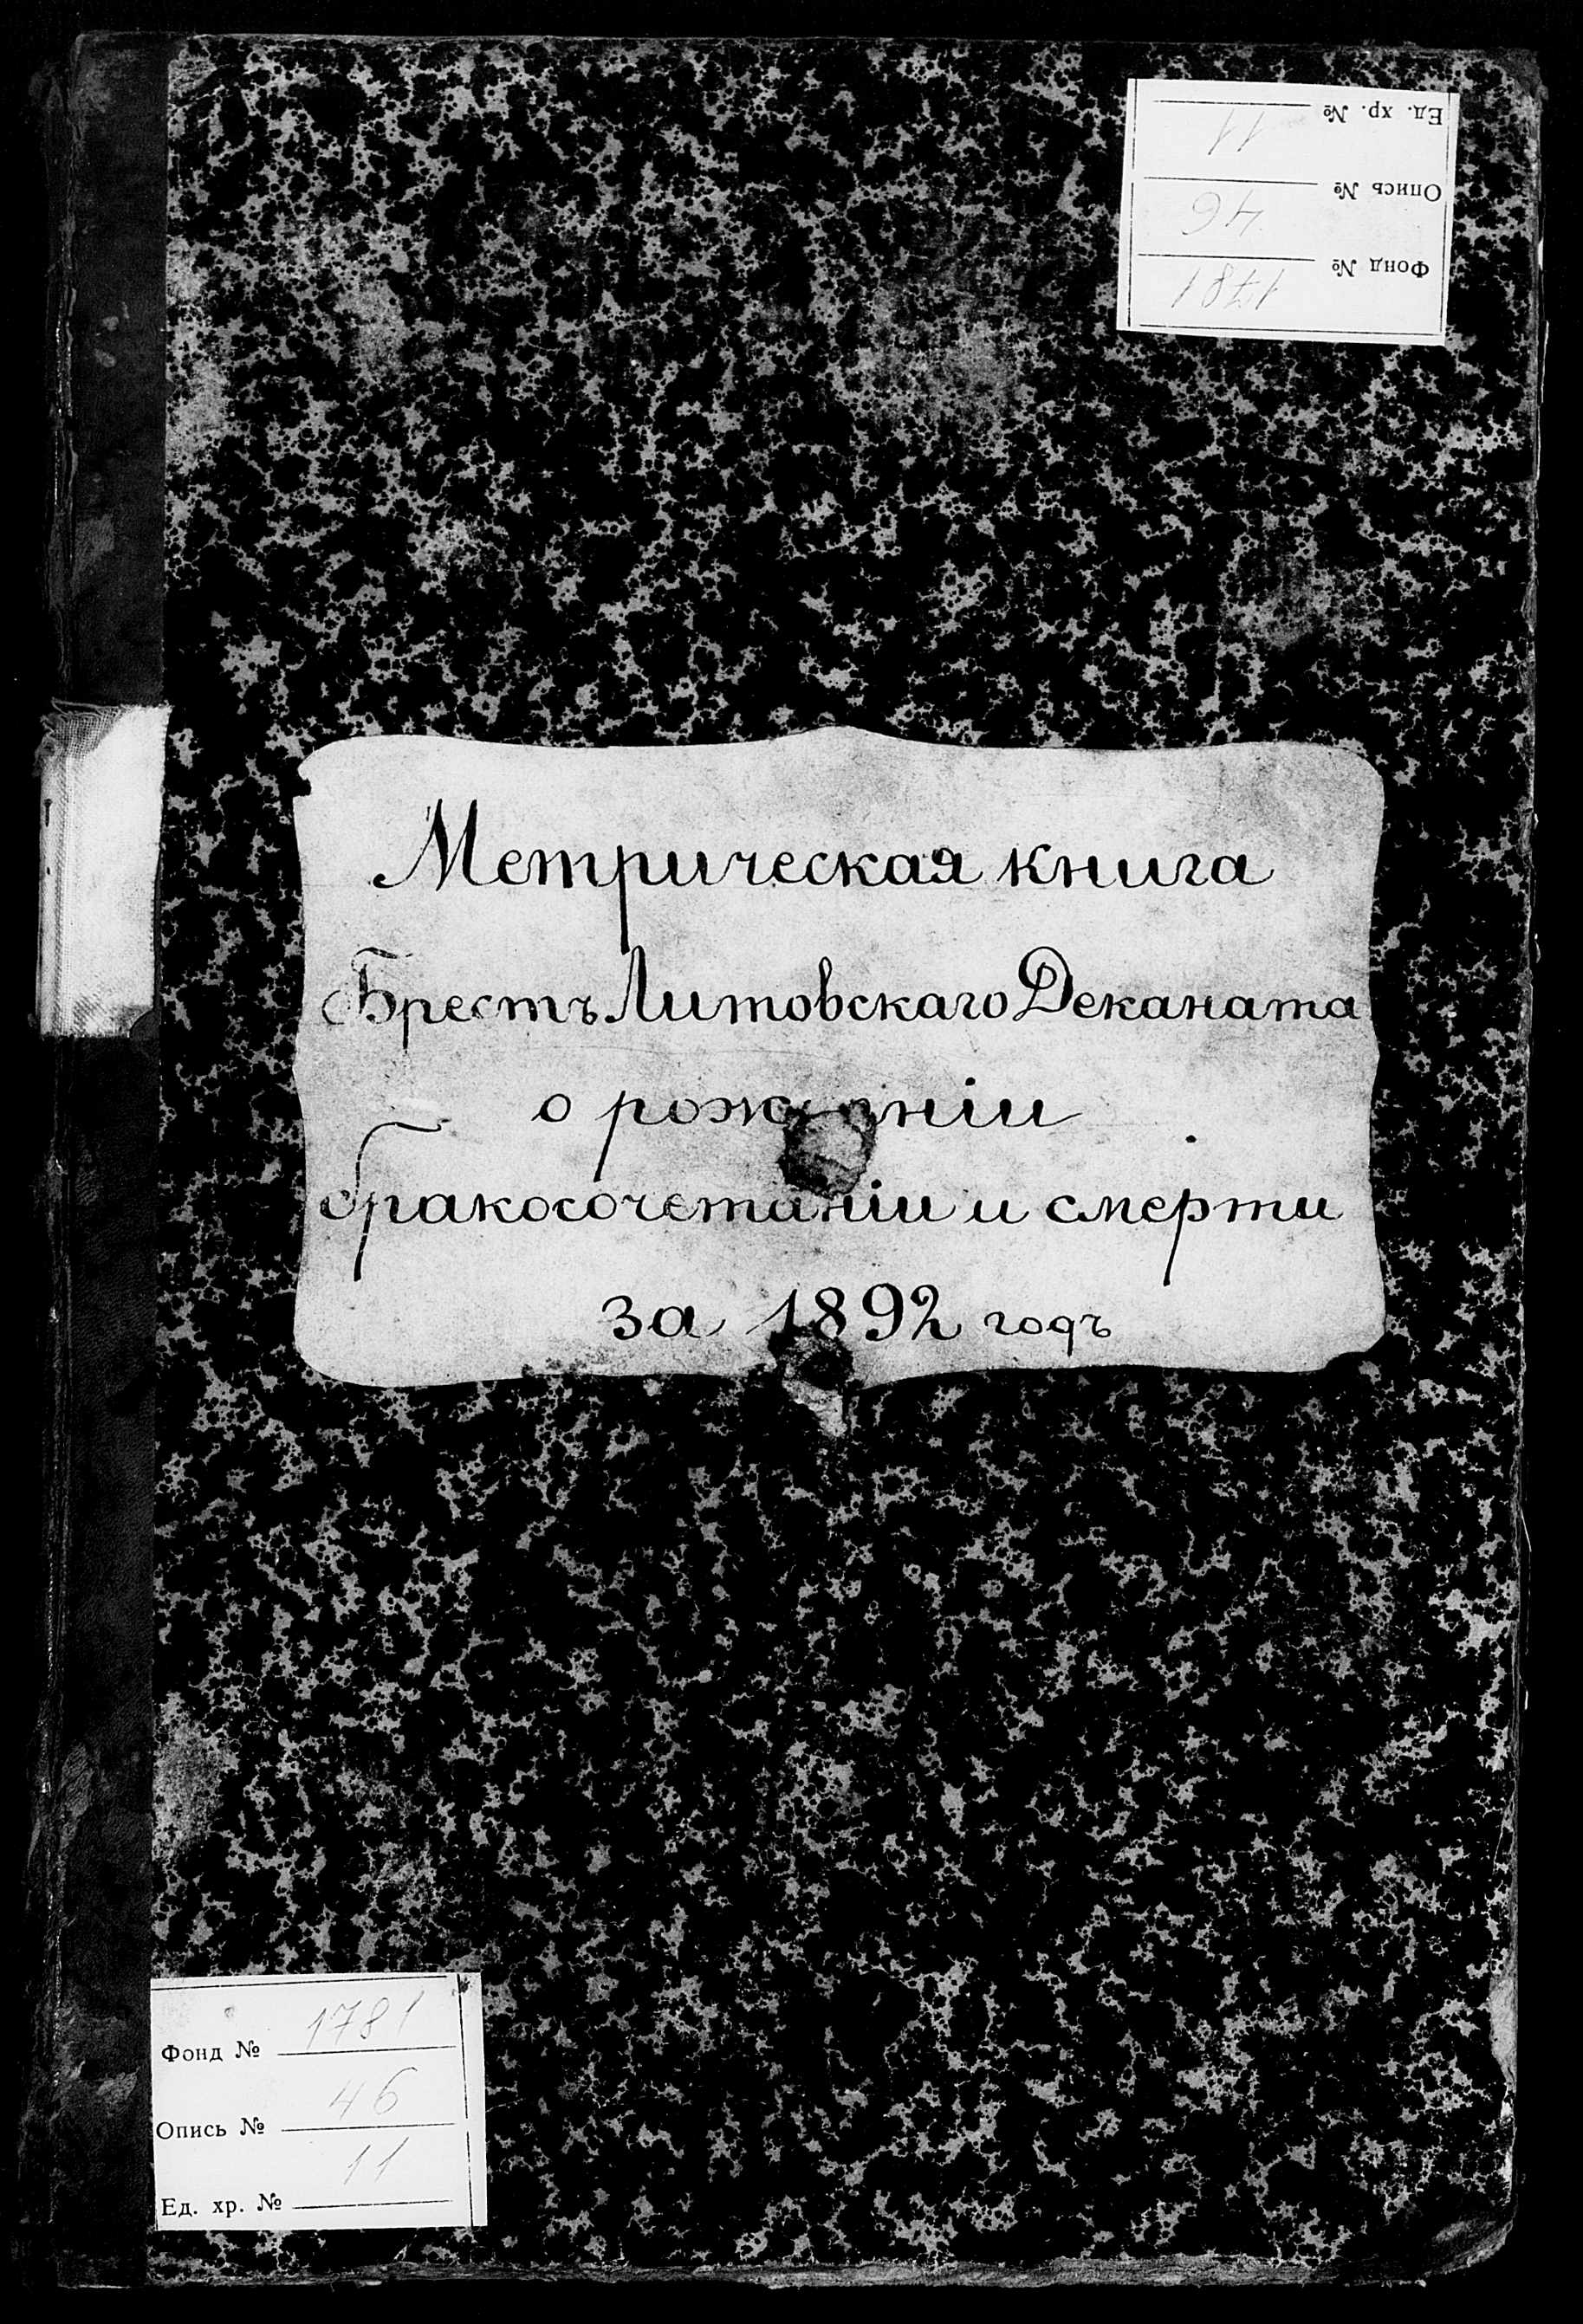 Ед. хр. № 11
Опись № 46
Фонд № 1781
Метрическая книга
Брестъ Литовскаго Деканата
о рожденіи
бракосочетаніи и смерти
за 1892 годъ
Фонд № 1781
Опись № 46
Ед. хр. № 11